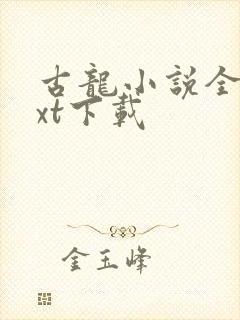 古龍小説全
xt下載
金玉峰